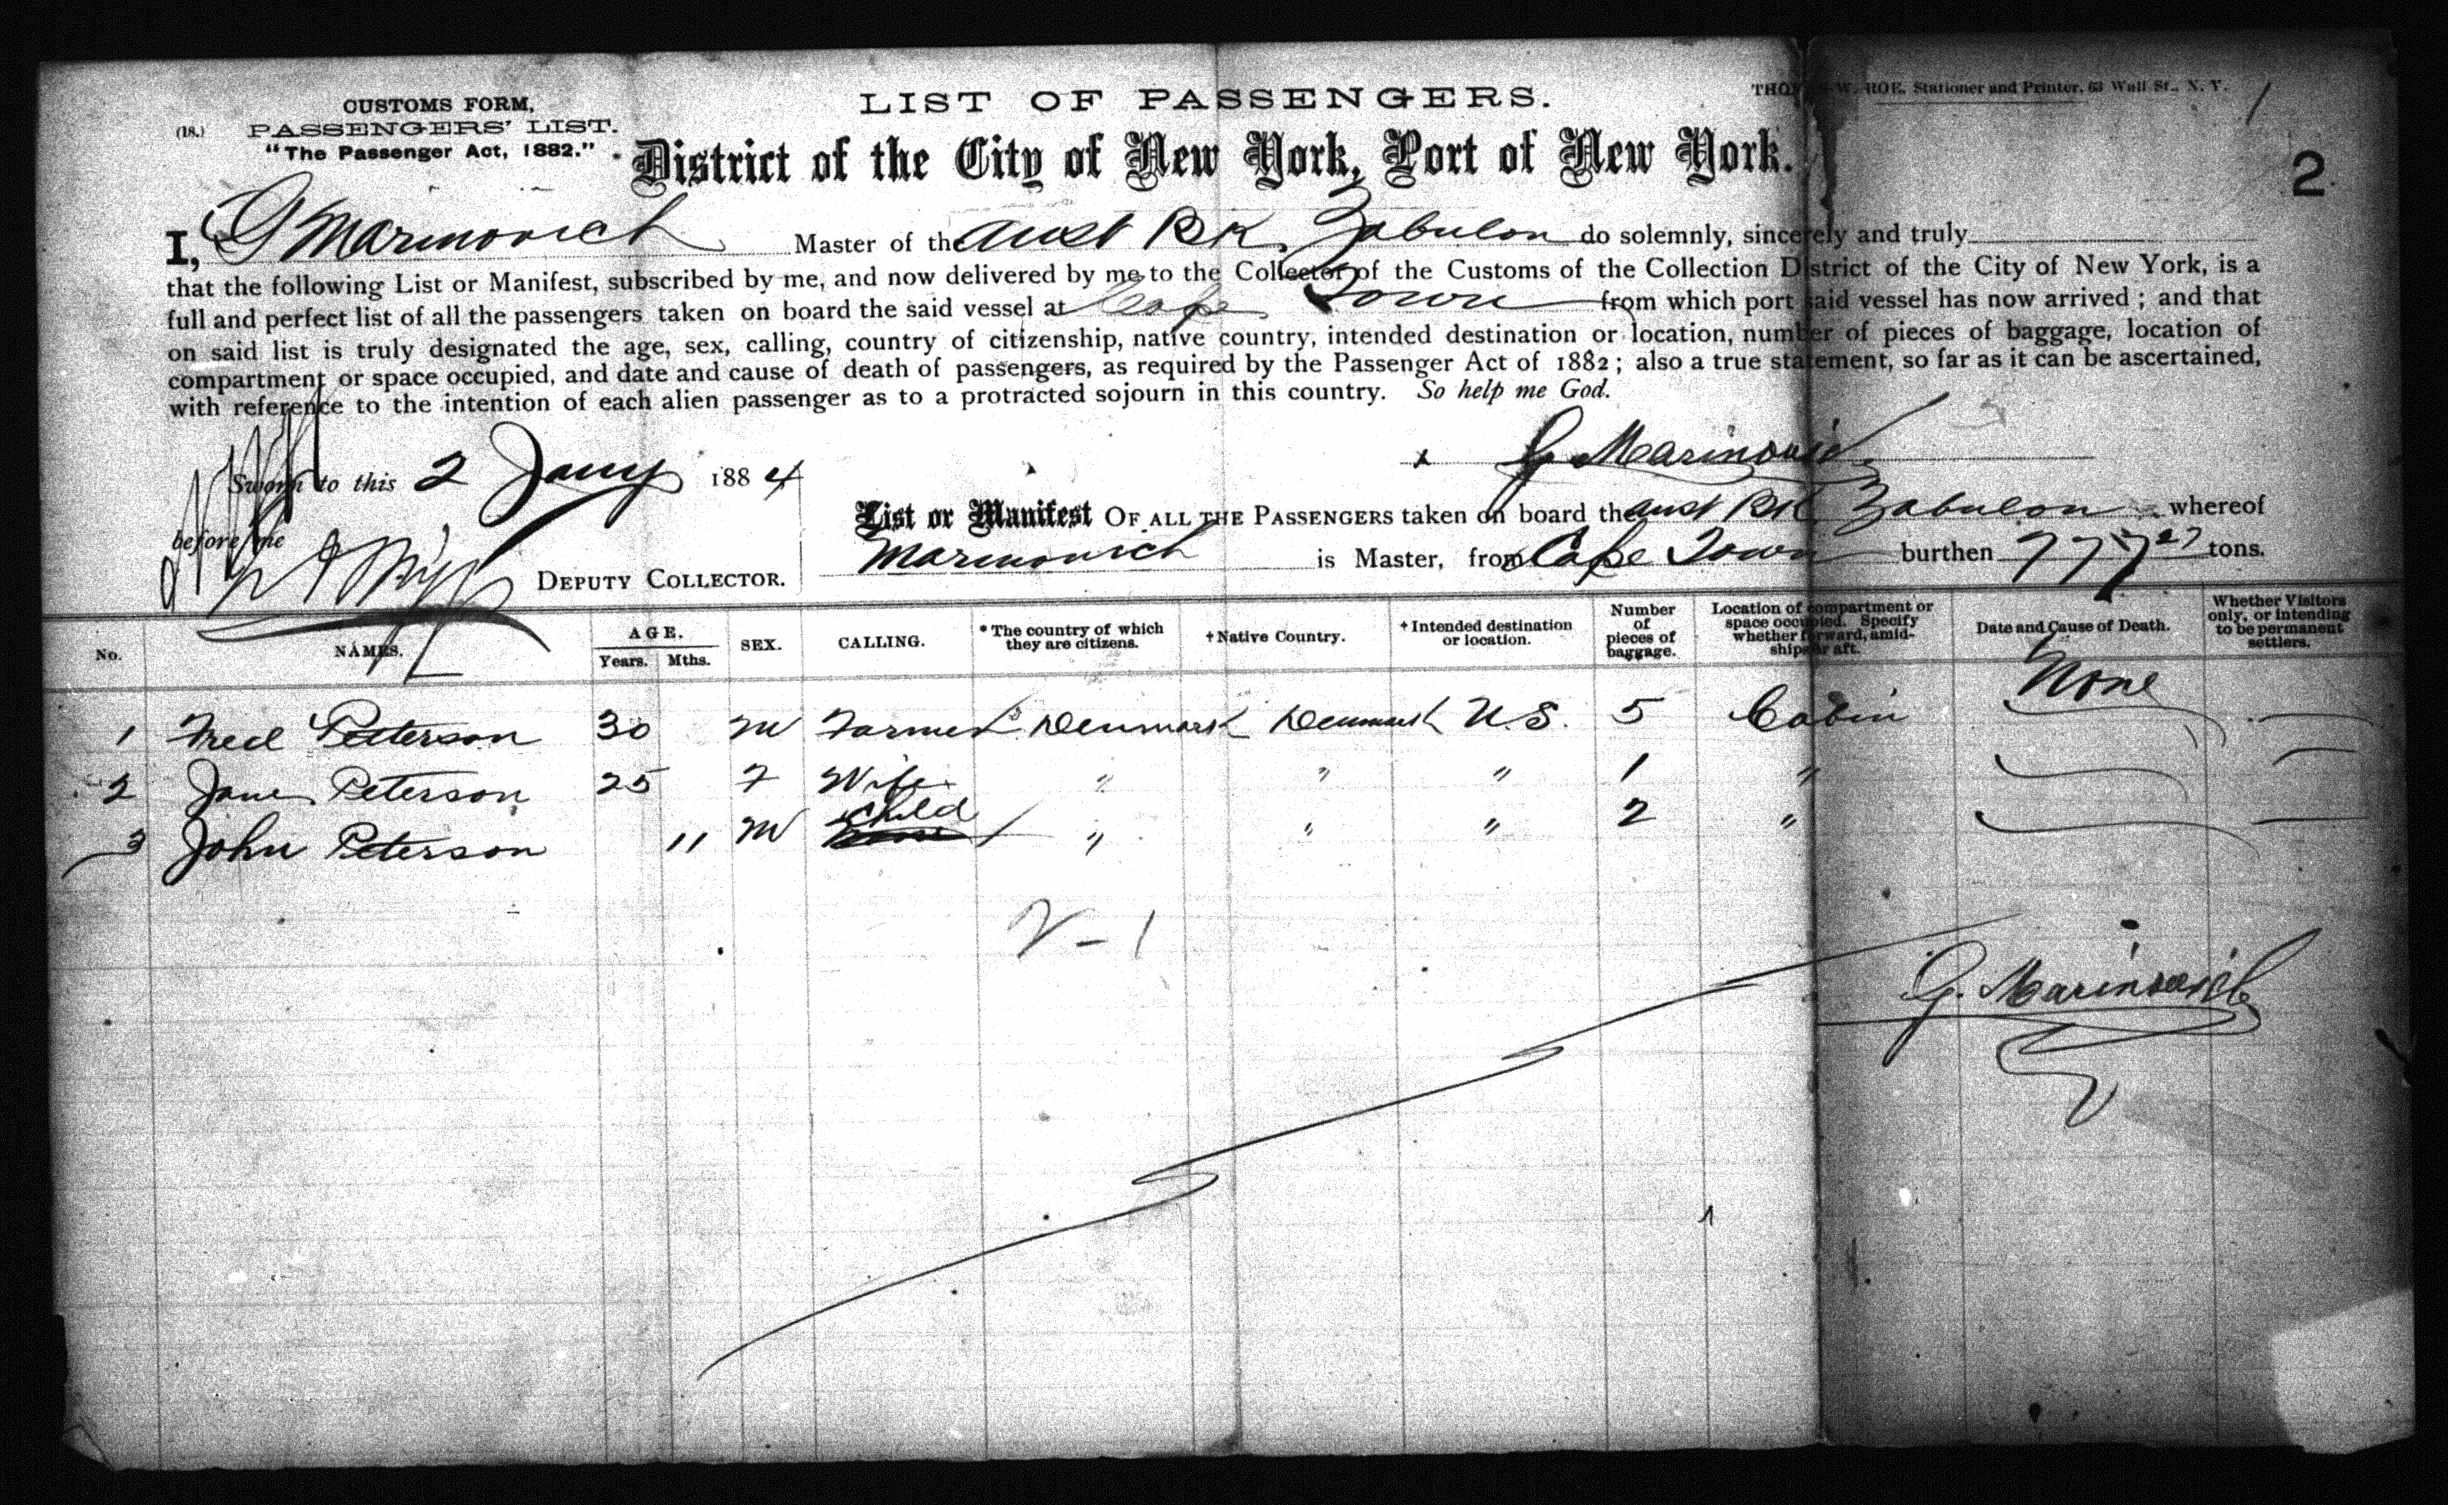 CUSTOMS FORM,
(18.) PASSENGERS' LIST.
"The Passenger Act, 1882."
LIST OF PASSENGERS.
THOMAS W. ROE, Stationer and Printer, 63 Wall St., N. Y.
1
2
District of the City of New York, Port of New York.
I, G Marinovich Master of the Aust Bk Zabulon do solemnly, sincerely and truly
that the following List or Manifest, subscribed by me, and now delivered by me to the Collector of the Customs of the Collection District of the City of New York, is a
full and perfect list of all the passengers taken on board the said vessel at Cape Town from which port said vessel has now arrived; and that
on said list is truly designated the age, sex, calling, country of citizenship, native country, intended destination or location, number of pieces of baggage, location of
compartment or space occupied, and date and cause of death of passengers, as required by the Passenger Act of 1882; also a true statement, so far as it can be ascertained,
with reference to the intention of each alien passenger as to a protracted sojourn in this country. So help me God.
x G. Marinovich
Sworn to this 2 Jany 1884
before me
DEPUTY COLLECTOR.
List or Manifest OF ALL THE PASSENGERS taken on board the Aust Bk Zabulon whereof
Marinovich is Master, from Cape Town burthen 777 27 tons.
No. NAMES. AGE. Years. Mths. SEX. CALLING. * The country of which they are citizens. † Native Country. † Intended destination or location. Number of pieces of baggage. Location of compartment or space occupied. Specify whether forward, amidships or aft. Date and Cause of Death. Whether Visitors only, or intending to be permanent settlers.
1 Fred Peterson 30 M Farmer Denmark Denmark U.S. 5 Cabin None —
2 Jane Peterson 25 F Wife " " " 1 " —
3 John Peterson 11 M Child " " " 2 " —
2 - 1
G. Marinovich